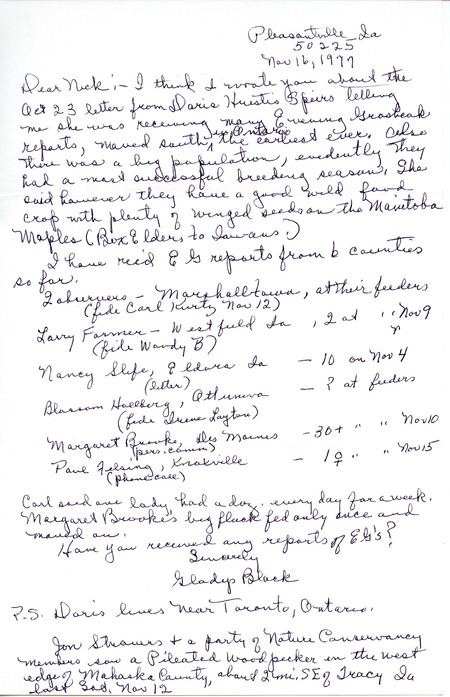 Pleasantville Ia
50225
Nov 16, 1977
Dear Nick:- I think I wrote you about the
Oct 23 letter from Doris Huestis Speirs telling
me she was receiving many Evening Grosbeak
in Ontario
reports, moved south, the earliest ever. Also
there was a big population, evidently they
had a most successful breeding season. She
said however they have a good wild food
crop with plenty of winged seeds on the Manitoba
Maples (Box Elders to Iowans!)
I have rec'd EG reports from 6 counties
so far.
2 observers - Marshalltown, at their feeders
(fide Carl Kurtz Nov 12)
Larry Farmer - Westfield Ia, 2 at " Nov 9
(fide Woody B)
Nancy Slife, Eldora Ia - 10 on Nov 4
(letter)
Blossom Hallberg, Ottumwa - ? at feeders
(fide Irene Layton)
Margaret Brooke, Des Moines - 30+ " " Nov 10
(pers. comm)
Paul Felsing, Knoxville - 1♀ " " Nov 15
(phone call)
Carl said one lady had a doz. every day for a week.
Margaret Brooke's big flock fed only once and
moved on.
Have you received any reports of EG's?
Sincerely
Gladys Black
P.S. Doris lives near Toronto, Ontario.
Jon Stravers + a party of Nature Conservancy
members saw a Pileated Woodpecker in the west
edge of Mahaska County, about 2 mi. SE of Tracy Ia
last Sat, Nov 12